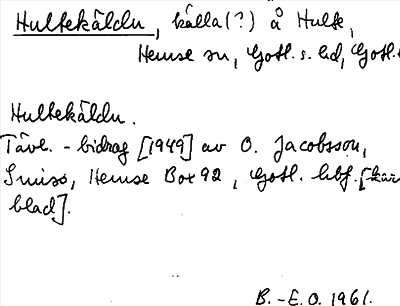 Hultekäldu, källa(?) å Hulte,
Hemse sn, Gotl. s. hd, Gotl.
Hultekäldu.
Tävl.-bidrag [1949] av O. Jacobsson,
Smiss, Hemse Box 92, Gotl. hbf. [
blad].
B.-E.O. 1961.